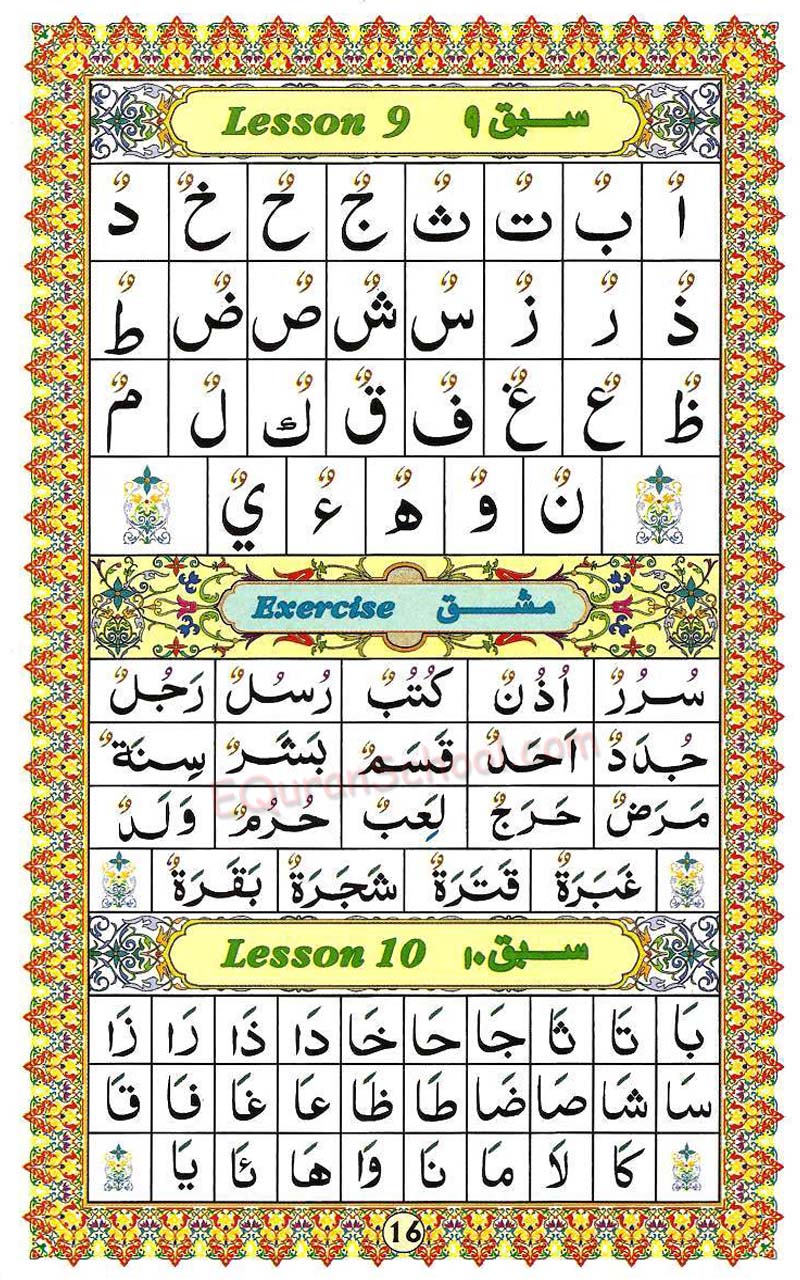 Lesson 9 سبق ۹
اٌ بٌ تٌ ثٌ جٌ حٌ خٌ دٌ
ذٌ رٌ زٌ سٌ شٌ صٌ ضٌ طٌ
ظٌ عٌ غٌ فٌ قٌ كٌ لٌ مٌ
نٌ وٌ هٌ ءٌ يٌ
Exercise مشق
سُرُرٌ اُذُنٌ كُتُبٌ رُسُلٌ رَجُلٌ
جُدَدٌ اَحَدٌ قَسَمٌ بَشَرٌ سِنَةٌ
EQuranSchool.com
مَرَضٌ حَرَجٌ لَعِبٌ حُرُمٌ وَلَدٌ
غَبَرَةٌ قَتَرَةٌ شَجَرَةٌ بَقَرَةٌ
Lesson 10 سبق ۱۰
بَا تَا ثَا جَا حَا خَا دَا ذَا رَا زَا
سَا شَا صَا ضَا طَا ظَا عَا غَا فَا قَا
كَا لَا مَا نَا وَا هَا ئَا يَا
16